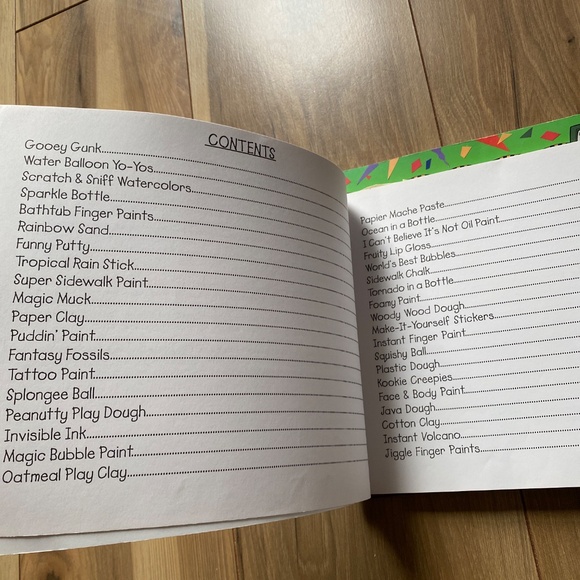 CONTENTS
Gooey Gunk
Water Balloon Yo-Yos
Scratch & Sniff Watercolors
Sparkle Bottle
Bathtub Finger Paints
Rainbow Sand
Funny Putty
Tropical Rain Stick
Super Sidewalk Paint
Magic Muck
Paper Clay
Puddin' Paint
Fantasy Fossils
Tattoo Paint
Splongee Ball
Peanutty Play Dough
Invisible Ink
Magic Bubble Paint
Oatmeal Play Clay
Papier Mache Paste
Ocean in a Bottle
I Can't Believe It's Not Oil Paint
Fruity Lip Gloss
World's Best Bubbles
Sidewalk Chalk
Tornado in a Bottle
Foamy Paint
Woody Wood Dough
Make-It-Yourself Stickers
Instant Finger Paint
Squishy Ball
Plastic Dough
Kookie Creepies
Face & Body Paint
Java Dough
Cotton Clay
Instant Volcano
Jiggle Finger Paints